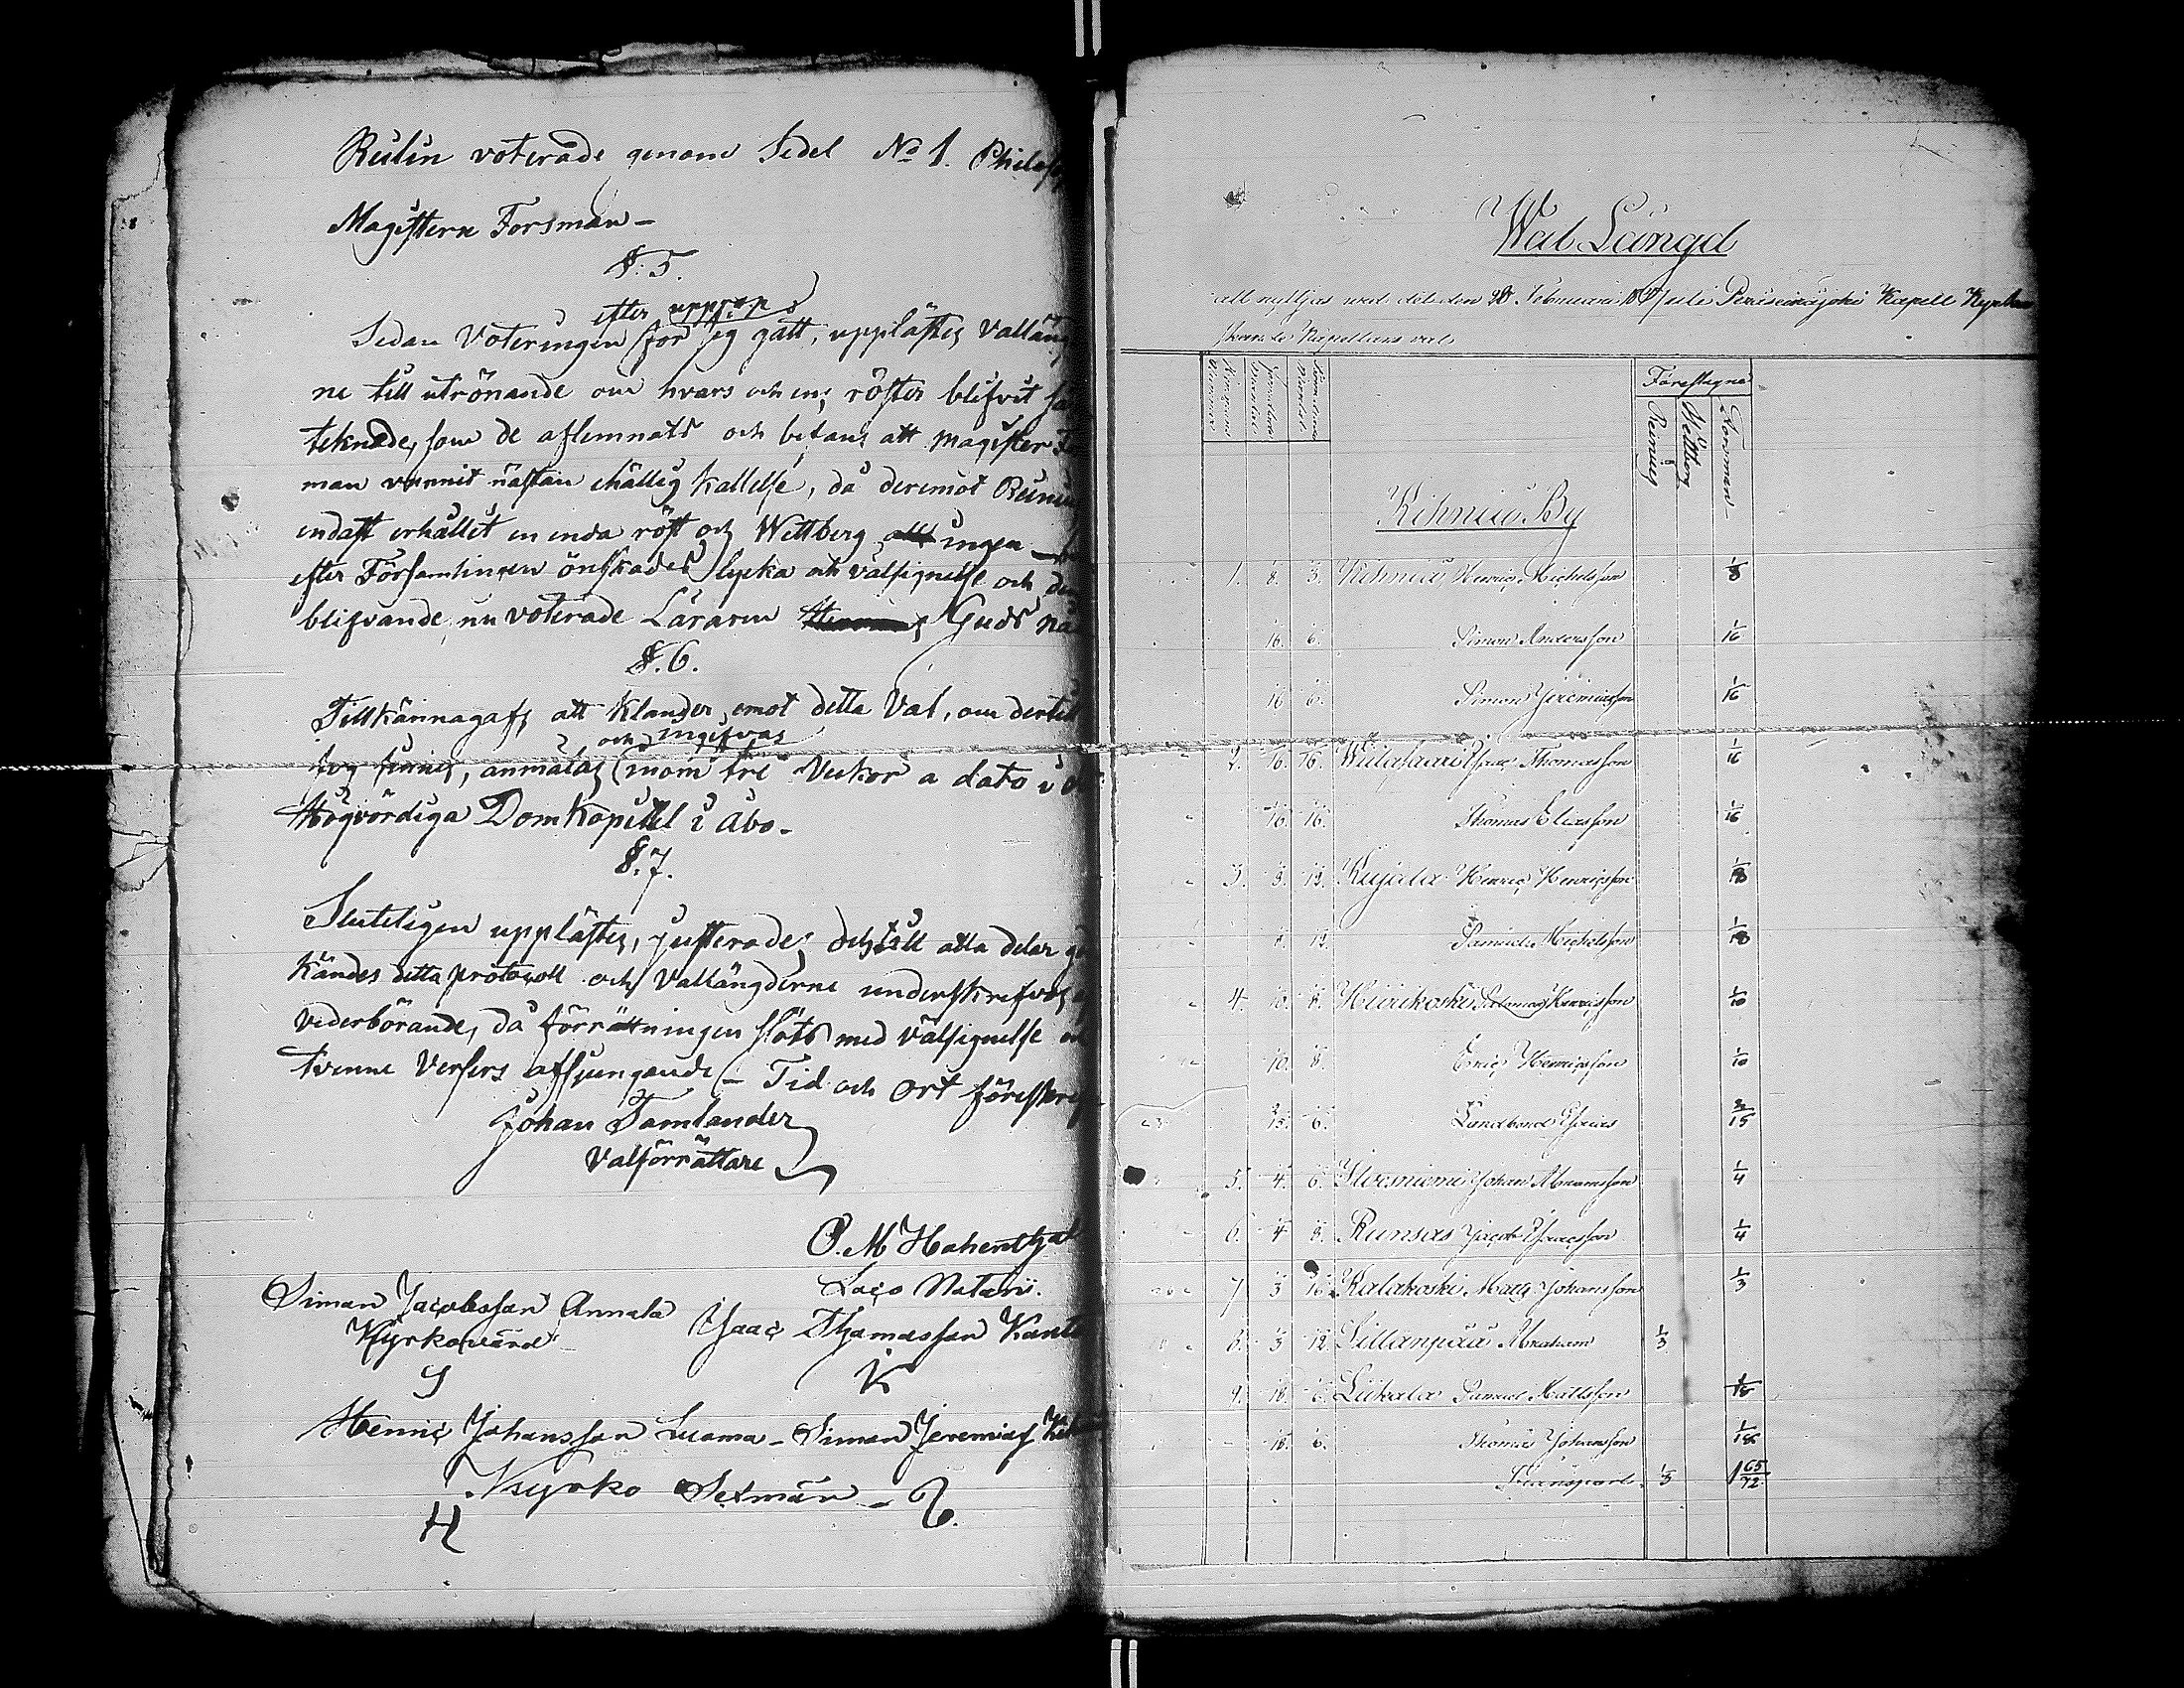 Reslin voterade genom Sedel No 1.
Magistern Forsman –
§. 5.
efter upprop
Sedan Voteringen för sig gått, upplästes Vallängder
ne till utrönande om hvars och ens röster blifvit
teknade, som de aflemnats och befans att Magister
man vunnit nästan ehällig kallelse, då deremot
endast erhållit en enda röst och Wettberg allt ingen
efter Församlingen önskades lycka och välsignelse och den
blifvande, nu voterade Läraren Guds
§. 6.
Tillkännagafs att klander, emot detta Val, om dertill
och ingifvas
fog finnes, anmälas inom tre Veckor a dato i
Högvördiga DomKapitel i Åbo –
§. 7.
Sluteligen upplästes, justerades och till alla delar
kändes detta protocoll och Vallängderne underskrefvos
vederbörande, då förrättningen slöts med välsignelse
tvenne Versers afsjungande – Tid och ort
Johan Tamlander
Valförrättare
O. M Hohenthal
Loco Notarii.
Simon Jacobsson Annala
Kyrkovärd
Isaac Thomasson
K
Henric Johansson Luoma – Simon Jeremias
Kyrko Sexmän –
H
Wal Längd
att nyttjas wid det den 28 Februarii 18 uti Peräseinäjoki Kapell
Capellans val
Föreslagne
Wettberg
Forsman
Kihniö By
1. 8. 3. Kihniä Henric Michelsson 1/8
16. 6. Simon Andersson 1/16
16 6. Simon Jeremiasson 1/16
2. 16. 16. Isaac Thomasson 1/16
16. 16. Thomas Eliasson 1/16
3. Kujala Henric Henricsson
Samuel Michelsson
4. 10. 8. Henricsson 1/10
10. 8. Eric Henricsson 1/10
2/15. 6. Landbond Esaias 2/15
5. 4. 6. Ylvesniemi Johan Abramsson 1/4
6. 4 8. Runsas Jacob Isacsson 1/4
7 3 16. Kalakoski Matts Johansson 1/3
8. 3 12. Sillanpää Abraham 1/3
9. 18. 6. Liikala Samuel Mattsson 1/18
18. 6. Thomas Johansson 1/18
Transport. 1/3 1 65/72